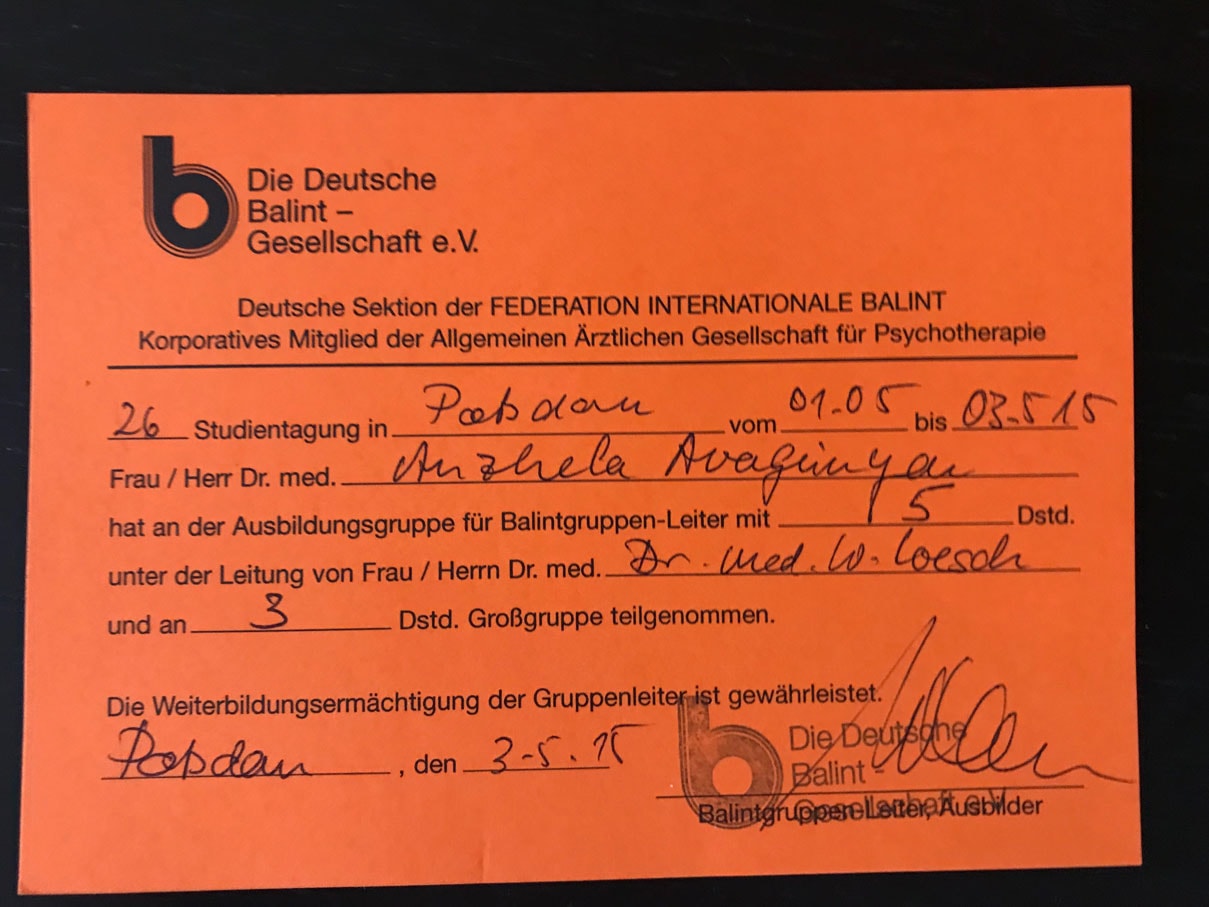 Die Deutsche
Balint –
Gesellschaft e.V.
Deutsche Sektion der FEDERATION INTERNATIONALE BALINT
Korporatives Mitglied der Allgemeinen Ärztlichen Gesellschaft für Psychotherapie
26 Studientagung in Potsdam vom 01.05 bis 03.5 15
Frau / Herr Dr. med. Anzhela Avagimyan
hat an der Ausbildungsgruppe für Balintgruppen-Leiter mit 5 Dstd.
unter der Leitung von Frau / Herrn Dr. med. Dr. med. W. Loesch
und an 3 Dstd. Großgruppe teilgenommen.
Die Weiterbildungsermächtigung der Gruppenleiter ist gewährleistet.
Potsdam, den 3-5.15
Die Deutsche
Balint –
Gesellschaft e.V.
Balintgruppen-Leiter, Ausbilder